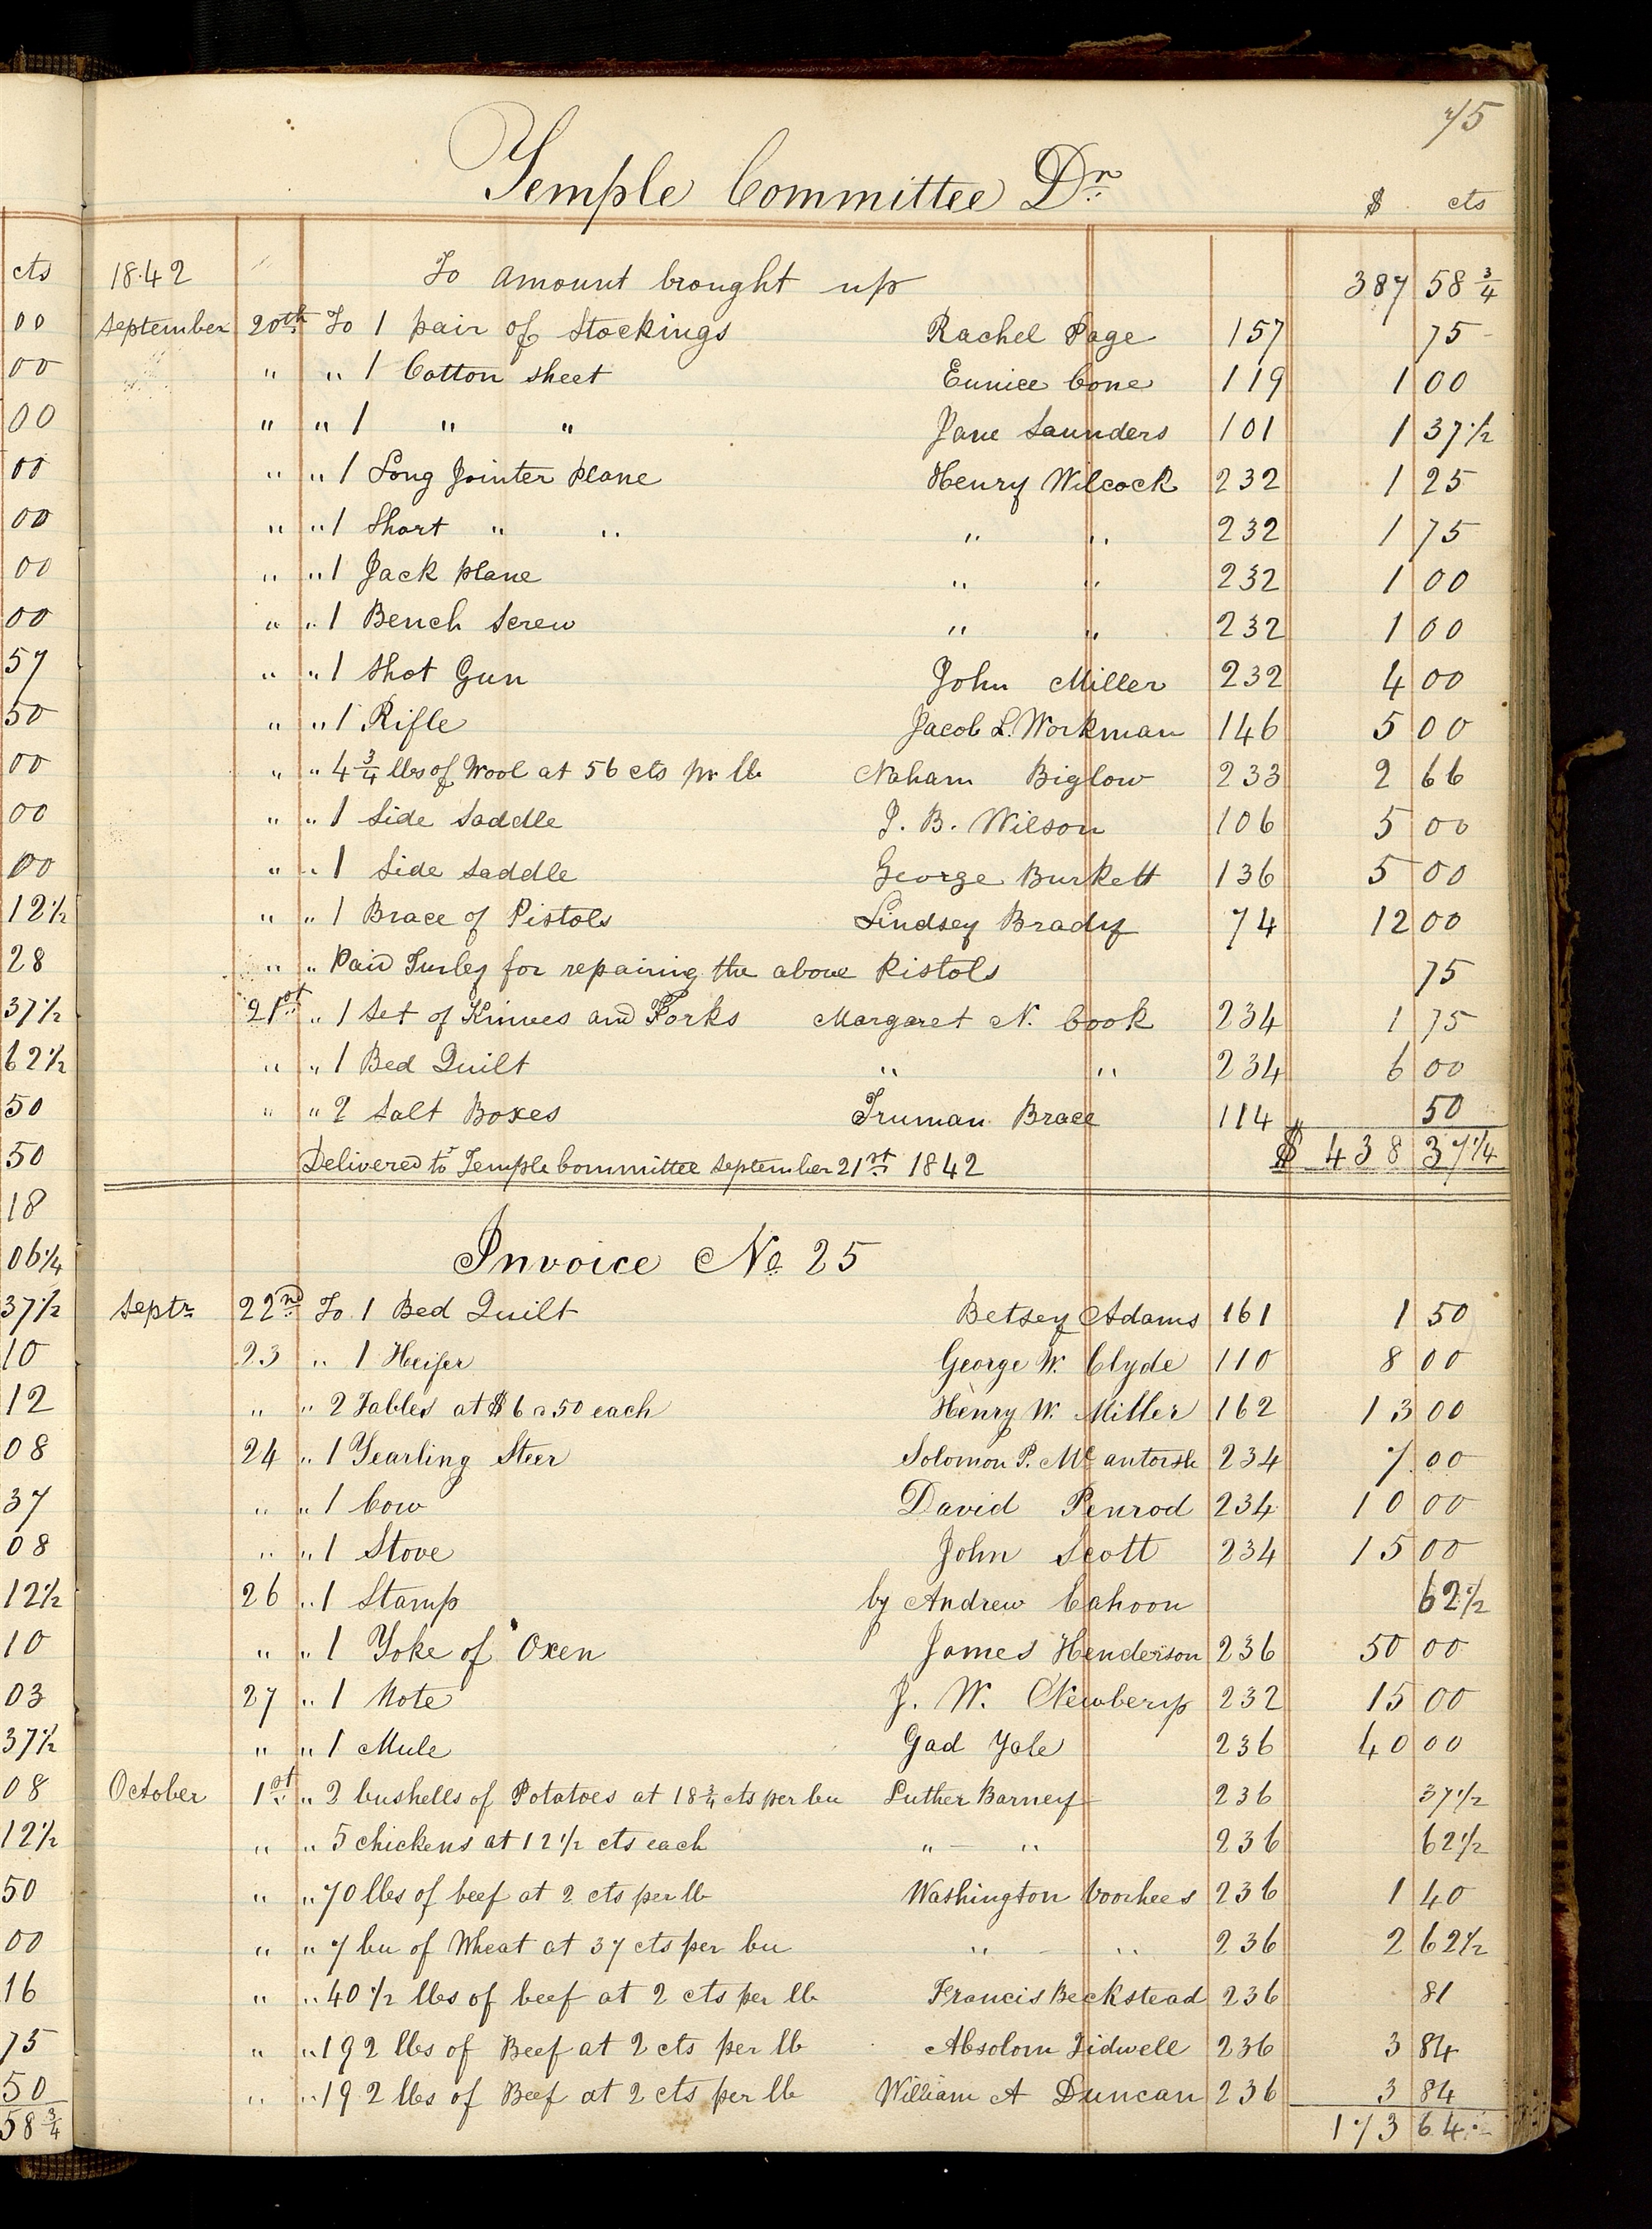 75
Temple Committee Dr.
$ cts
1842 To amount brought up 387 58 3/4
September 20th To 1 pair of Stockings Rachel Page 157 75
" " 1 Cotton sheet Eunice Cone 119 1 00
" " 1 " " Jane Saunders 101 1 37 1/2
" " 1 Long Jointer plane Henry Wilcock 232 1 25
" " 1 Short " " " " 232 1 75
" " 1 Jack plane " " 232 1 00
" " 1 Bench Screw " " 232 1 00
" " 1 Shot Gun John Miller 232 4 00
" " 1 Rifle Jacob L. Workman 146 5 00
" " 4 3/4 lbs of Wool at 56 cts pr lb Naham Biglow 233 2 66
" " 1 Side Saddle J. B. Wilson 106 5 00
" " 1 Side saddle George Burkett 136 5 00
" " 1 Brace of Pistols Lindsey Brady 74 12 00
" " Paid Turley for repairing the above Pistols 75
21st " 1 Set of Knives and Forks Margaret N. Cook 234 1 75
" " 1 Bed Quilt " " 234 6 00
" " 2 Salt Boxes Truman Brace 114 " 50
Delivered to Temple Committee September 21st 1842 $ 438 37 1/4
Invoice No 25
Septr 22nd To 1 Bed Quilt Betsey Adams 161 1 50
23 " 1 Heifer George W. Clyde 110 8 00
" " 2 Tables at $6 a 50 each Henry W. Miller 162 13 00
24 " 1 Yearling Steer Solomon P. Mc antorsh 234 7 00
" " 1 Cow David Penrod 234 10 00
" " 1 Stove John Scott 234 15 00
26 " 1 Stamp by Andrew Cahoon 62 1/2
" " 1 Yoke of Oxen James Henderson 236 50 00
27 " 1 Note J. W. Newbery 232 15 00
" " 1 Mule Gad Yale 236 40 00
October 1st " 2 bushells of Potatoes at 18 3/4 cts per bu Luther Barney 236 37 1/2
" " 5 chickens at 12 1/2 cts each " " 236 62 1/2
" " 70 lbs of beef at 2 cts per lb Washington Voorhees 236 1 40
" " 7 bu of Wheat at 37 cts per bu " " 236 2 62 1/2
" " 40 1/2 lbs of beef at 2 cts per lb Francis Beckstead 236 81
" " 192 lbs of Beef at 2 cts per lb Absolom Tidwell 236 3 84
" " 192 lbs of Beef at 2 cts per lb William A Duncan 236 3 84
173 64
cts
00
00
00
00
00
00
00
57
50
00
00
00
12 1/2
28
37 1/2
62 1/2
50
50
18
06 1/4
37 1/2
10
12
08
37
08
12 1/2
10
03
37 1/2
08
12 1/2
50
00
16
75
50
58 3/4